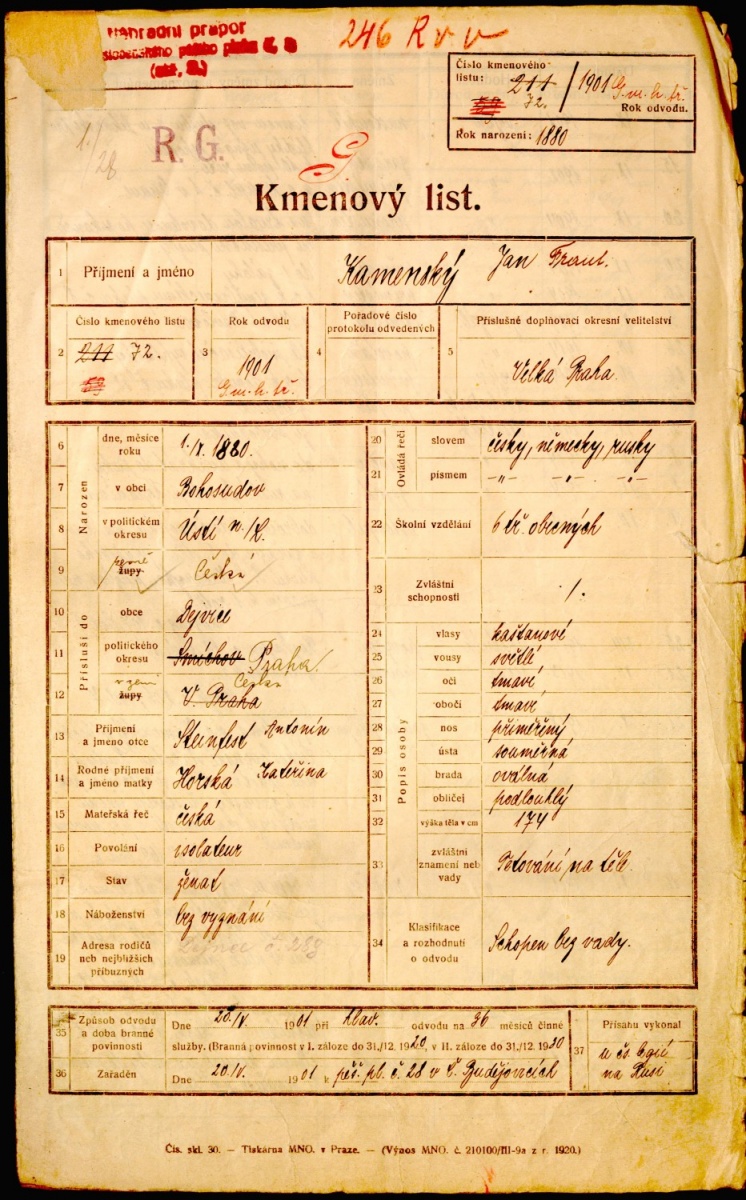 Náhradní prapor
československého pěšího pluku č.
246 R v v
Číslo kmenového
listu: 211 / 1901 G.m.h.tř.
72. Rok odvodu.
Rok narození: 1880
1./28
R. G.
G
Kmenový list.
1 Příjmení a jméno Kamenský Jan Frant.
Číslo kmenového listu Rok odvodu Pořadové číslo protokolu odvedených Příslušné doplňovací okresní velitelství
2 211 72. 3 1901 4 5 Velká Praha.
G.m.h.tř.
Narozen
6 dne, měsíce roku 1./V. 1880.
7 v obci Bohosudov
8 v politickém okresu Ústí n./L.
9 župy Česká
Přísluší do
10 obce Dejvice
11 politického okresu Smíchov Praha
v zemi Česká
12 župy V. Praha
13 Příjmení a jméno otce Steinfest Antonín
14 Rodné příjmení a jméno matky Horská Kateřina
15 Mateřská řeč česká
16 Povolání isolateur
17 Stav ženat
18 Náboženství bez vyznání
19 Adresa rodičů neb nejbližších příbuzných
Ovládá řeči
20 slovem česky, německy, rusky
21 písmem -"- -"- -"-
22 Školní vzdělání 6 tř. obecných
23 Zvláštní schopnosti /.
Popis osoby
24 vlasy kaštanové
25 vousy světlé
26 oči tmavé
27 obočí tmavé
28 nos přiměřený
29 ústa souměrná
30 brada oválná
31 obličej podlouhlý
32 výška těla v cm 174
33 zvláštní znamení neb vady Tetování na těle.
34 Klasifikace a rozhodnutí o odvodu Schopen bez vady.
35 Způsob odvodu a doba branné povinnosti
Dne 20/IV. 1901 při hlav. odvodu na 36 měsíců činné
služby. (Branná povinnost v I. záloze do 31./12. 1920, v II. záloze do 31./12. 1930
36 Zařaden Dne 20./IV. 1901 k pěš. pl. č. 28 v Č. Budějovicích
37 Přísahu vykonal
u čs. legií
na Rusi
Čís. skl. 30. — Tiskárna MNO. v Praze. — (Výnos MNO. č. 210100/III-9a z r. 1920.)